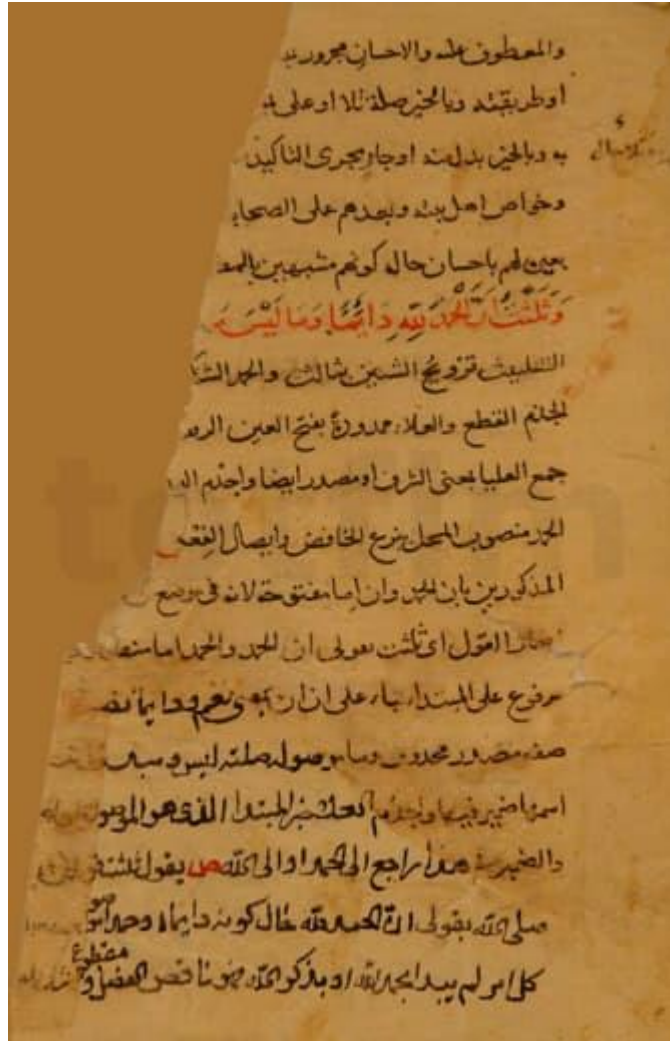 والمعطوف علىه والاحسان مجرور
اوطريقته وبالخير صلة تلا او على
به وبالخير بدل منه او جار مجرى التاكيد
وخواص اهل بيته وبعدهم على الصحا
بعين لهم باحسان حال كونهم مشبهين بالمـ
وَثَلَّثْتُ اَنَّ الْحَمْدَ لِلّٰهِ دَايِمًا وَمَا لَيْسَ
التثليث تزويج الشيئين بثالث والحمد
الجذم القطع والعلاء ممدودة بفتح العين
جمع العليا بمعنى الشرف او مصدر ايضا واجذم
الحمد منصوب المحل بنزع الخافض وايصال الفعـ
المذكورين بان الحمد وان اما مفتوحة لانه في موضع
القول اى ثلثت بقولى ان الحمد والحمد اما
مرفوع على المبتدا بناء على ان ان بمعنى نعم ودايما
صفة مصدر محذوف وما موصولة صلته ليس
اسمها ضمير فيها واجذم العلا خبر المبتدا الذى هو الموصول
والضمير راجع الى الحمد او الى الله ص يقول ثلثت
صلى الله بقولى ان الحمد لله حال كونه دايما
كل امر لم يبدا بحمد الله او بذكر الله فهو ناقص الفضل و مقطوع